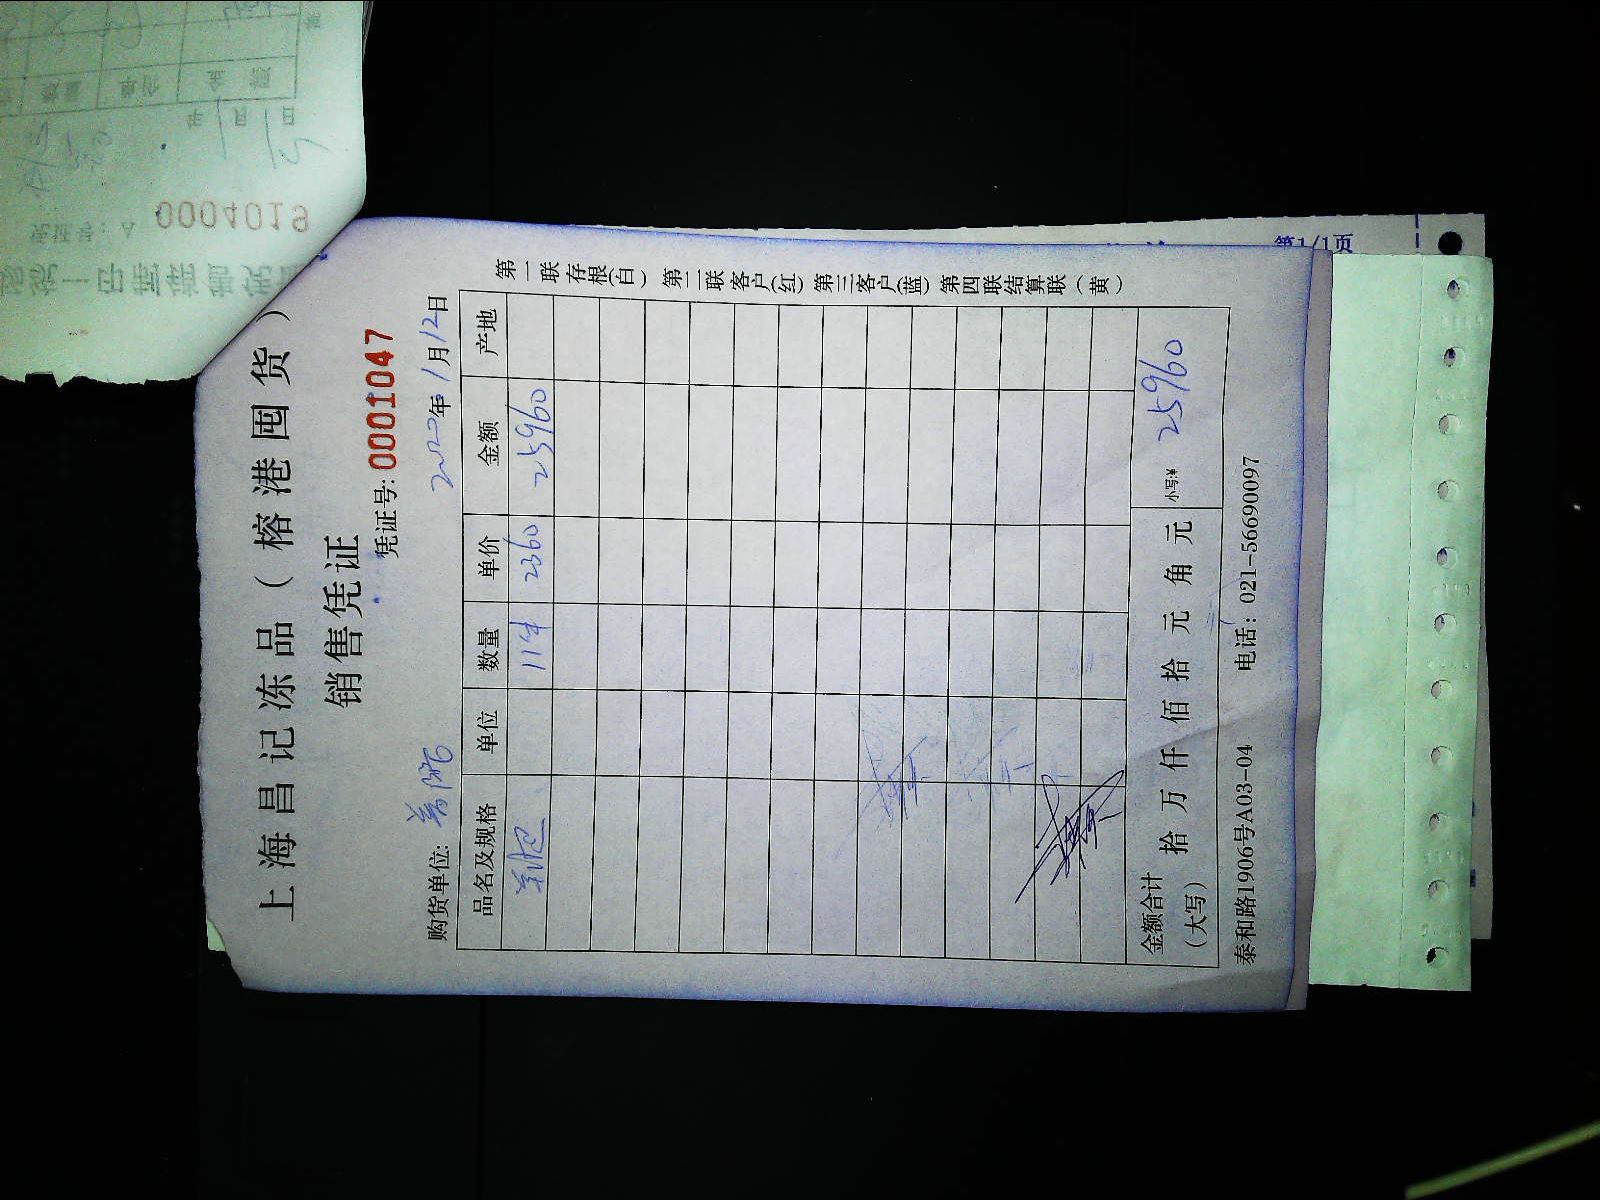 上海昌记冻品（榕港囤货）
销售凭证
凭证号: 0001047
购货单位:
2020年1月12日
品名及规格 单位 数量 单价 金额 产地
11件 2360 25960
金额合计（大写） 拾 万 仟 佰 拾 元 角 元 小写:¥ 25960
泰和路1906号A03-04 电话：021-56690097
第一联存根(白) 第二联客户(红) 第三客户(蓝) 第四联结算联（黄）
第1/1页
凭证号：A 0004019
年 月 日
数量 单价 金额